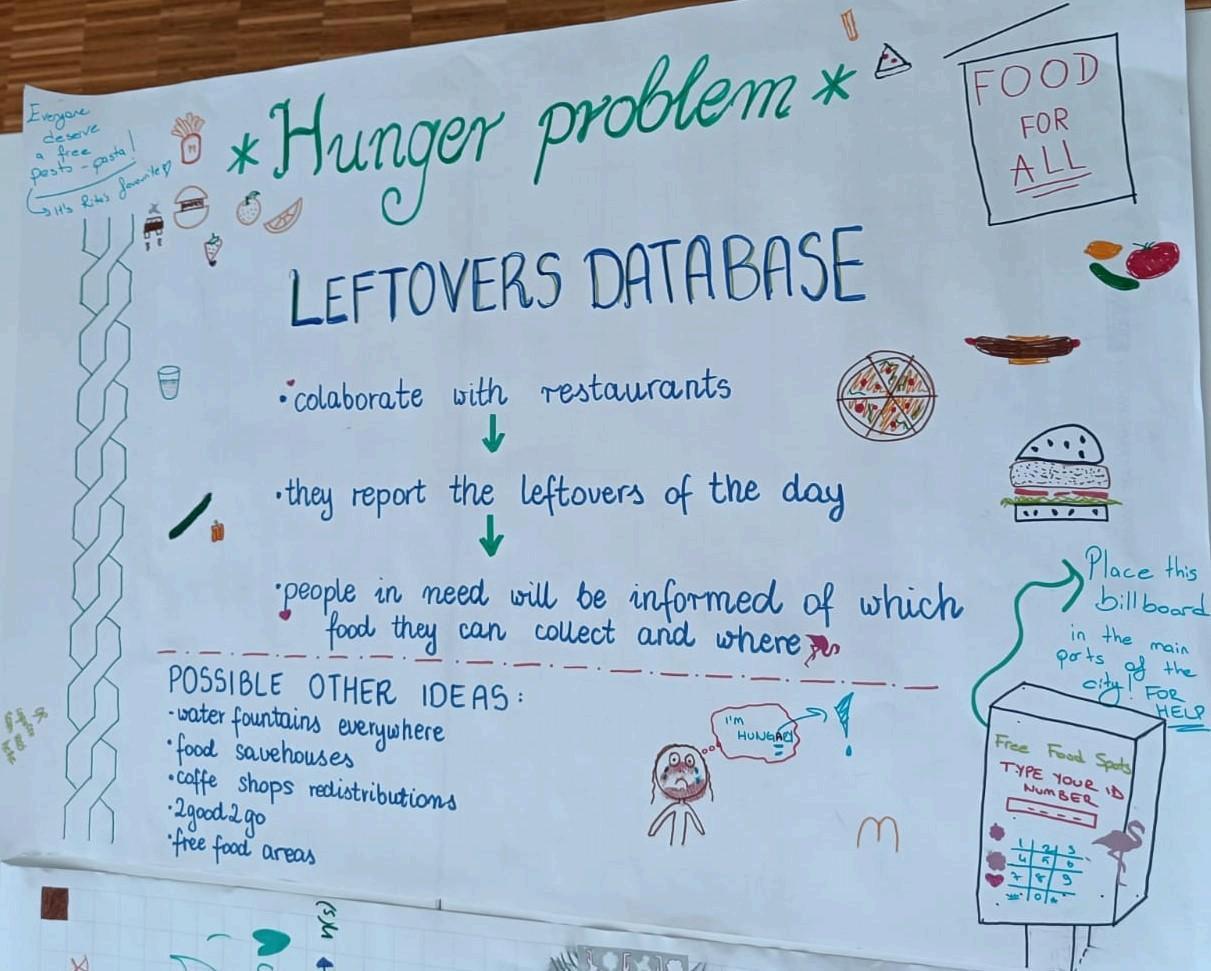 Everyone
deserve
a free
pasta-pasta!
It's Rita's favourite
*Hunger problem*
FOOD
FOR
ALL
LEFTOVERS DATABASE
•colaborate with restaurants
•they report the leftovers of the day
•people in need will be informed of which
food they can collect and where
POSSIBLE OTHER IDEAS:
-water fountains everywhere
•food savehouses
•caffe shops redistributions
•2good2go
•free food areas
I'M
HUNGARY
Place this
billboard
in the main
parts of the
city! FOR
HELP
Free Food Spots
TYPE YOUR ID
NUMBER
1 2 3
4 5 6
7 8 9
* 0 *